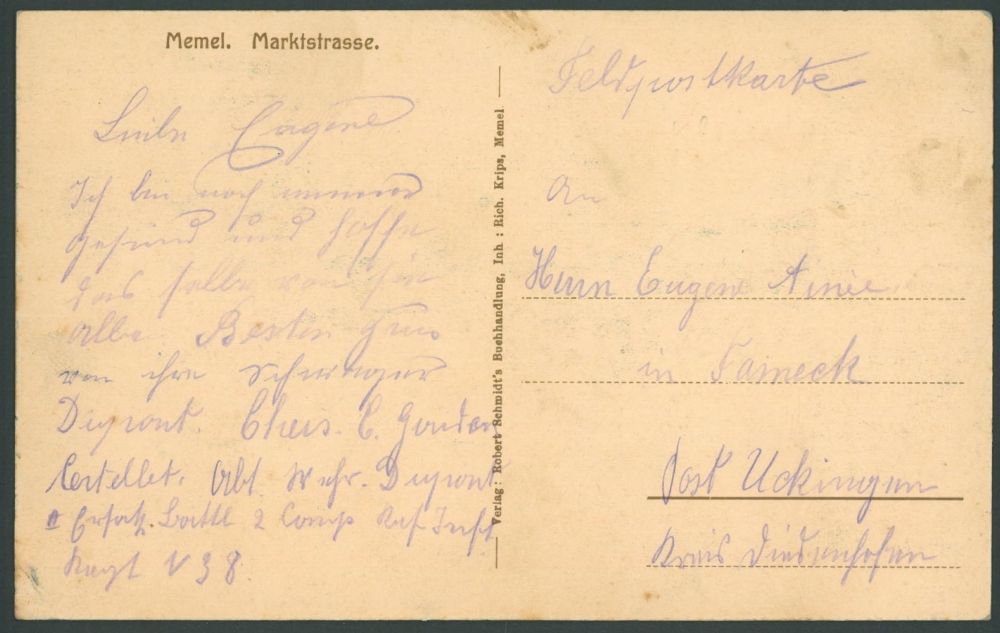 Memel. Marktstrasse.
Eugene
Ich bin noch immer
gesund und hoffe
das selbe von
alle. Besten Grus
von ihre Schwager
Dupont.
Abt. Wehr. Dupont
II Ersatz. Battl 2 Comp Res. Inft
Regt V 38
Verlag: Robert Schmidt's Buchhandlung, Inh: Rich. Krips, Memel
Feldpostkarte
An
Herrn Eugene
in Fameck
Post Uckingen
Kreis Diedenhofen